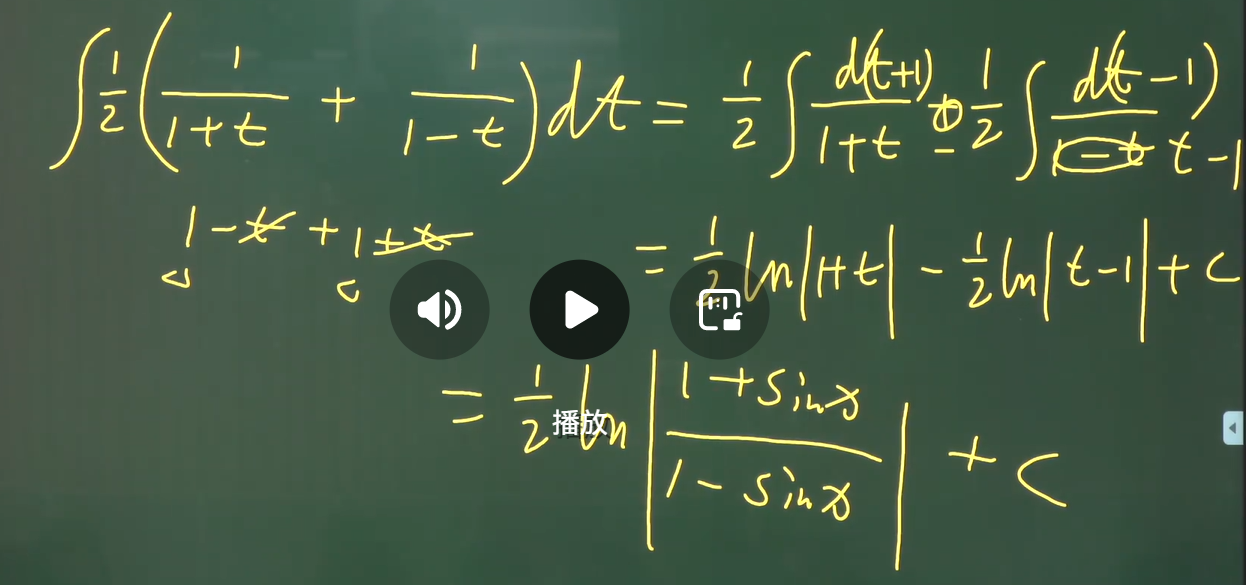 ∫ 1/2 ( 1/(1+t) + 1/(1-t) ) dt = 1/2 ∫ d(t+1)/(1+t) - 1/2 ∫ d(t-1)/(t-1)
1-t+1+t
= 1/2 ln|1+t| - 1/2 ln|t-1| + C
= 1/2 ln|(1+sinx)/(1-sinx)| + C
播放